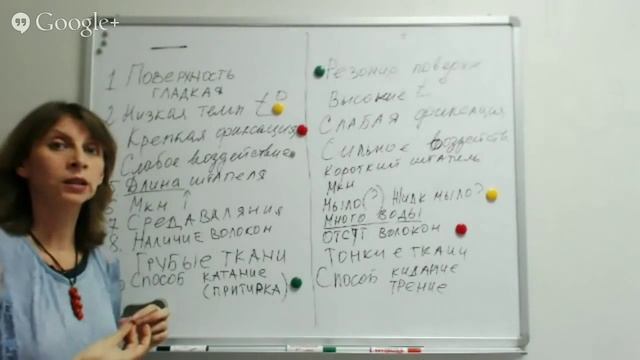 Google+
1 Поверхность
гладкая
2 Низкая темп t°
Крепкая фиксация
Слабое воздействие
5 Длина штапеля
6 Мкн ↑
7 Среда валяния
8. Наличие волокон
Грубые ткани
Способ катание
(притирка)
Высокие t
Слабая фиксация
Сильное
Короткий штапель
Мкн
Мыло(?) Жидк мыло?
Много воды
Отст волокон
Тонкие ткани
Способ кидание
трение